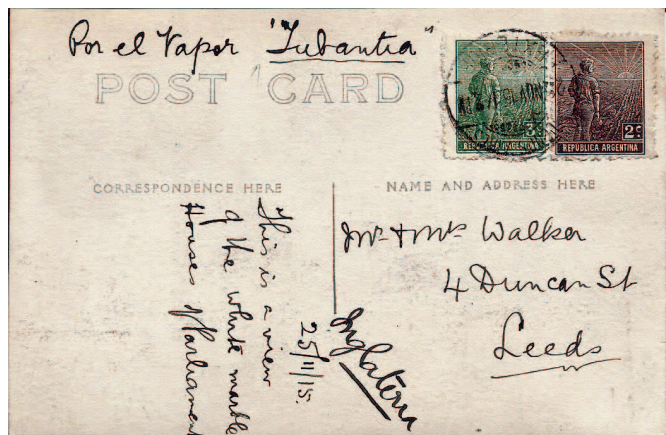 Por el Vapor "Tubantia"
POST CARD
3c
REPUBLICA ARGENTINA
2c
REPUBLICA ARGENTINA
CORRESPONDENCE HERE
NAME AND ADDRESS HERE
25/11/15.
This is a view
of the white marble
Houses of Parliament
Mr & Mrs Walker
4 Duncan St
Leeds
Inglaterra